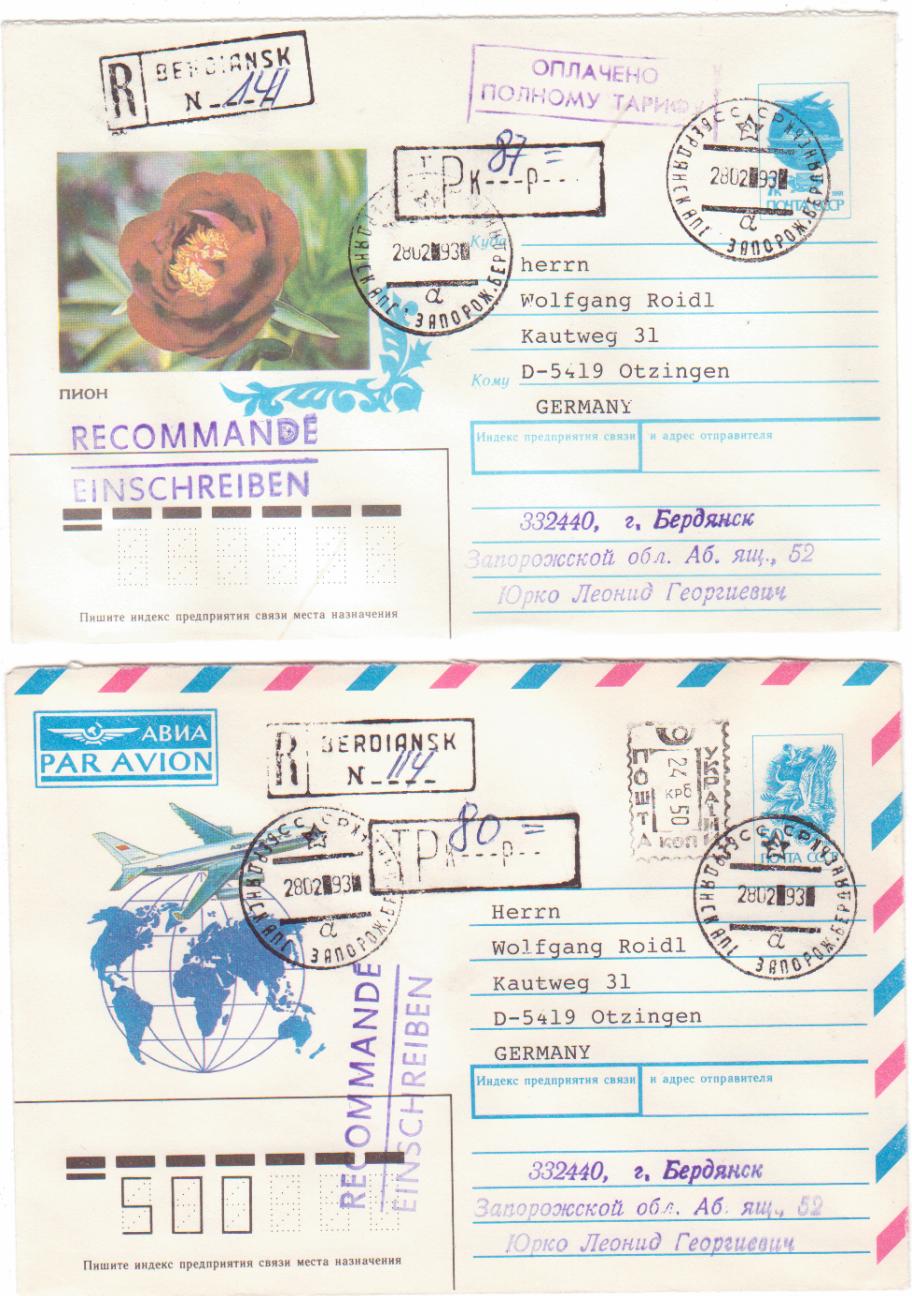 R BERDIANSK
N 141
ОПЛАЧЕНО
ПОЛНОМУ ТАРИФУ
ТР 87 =
К---Р---
7к
ПОЧТА СССР
СССР
28 02 93
а
ЗАПОРОЖ.
28 02 93
а
ЗАПОРОЖ.
ПИОН
Куда
herrn
Wolfgang Roidl
Kautweg 31
Кому D-5419 Otzingen
GERMANY
RECOMMANDÉ
EINSCHREIBEN
Индекс предприятия связи и адрес отправителя
332440, г. Бердянск
Запорожской обл. Аб. ящ., 52
Юрко Леонид Георгиевич
Пишите индекс предприятия связи места назначения
АВИА
PAR AVION
R BERDIANSK
N 114
УКРАЇНА
24 крб 50 коп
ПОШТА
ПОЧТА СССР
ТР 80 =
К---Р--
28 02 93
а
ЗАПОРОЖ.
28 02 93
а
ЗАПОРОЖ.
Herrn
Wolfgang Roidl
Kautweg 31
D-5419 Otzingen
GERMANY
RECOMMANDÉ
EINSCHREIBEN
Индекс предприятия связи и адрес отправителя
500
332440, г. Бердянск
Запорожской обл. Аб. ящ., 52
Юрко Леонид Георгиевич
Пишите индекс предприятия связи места назначения